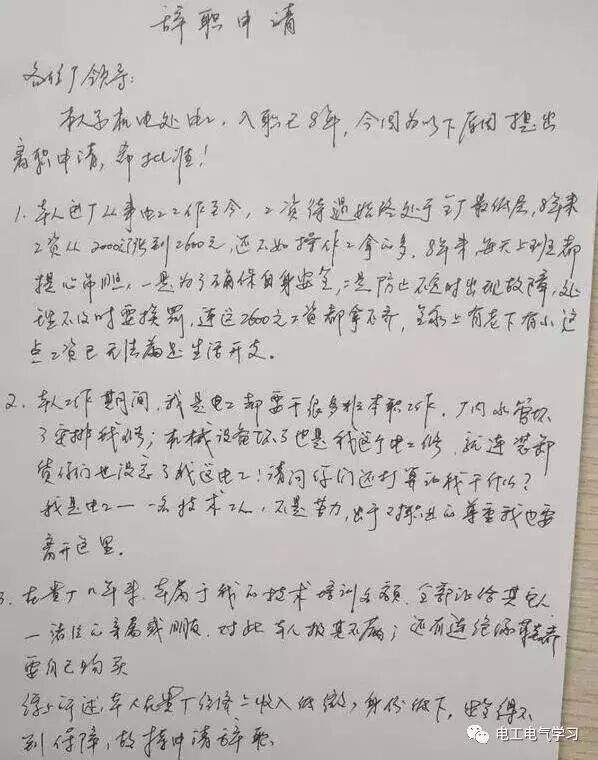 辞职申请
各位厂领导:
本人系机电处电工,入职已8年,今因为以下原因提出
离职申请,希批准!
1. 本人进厂从事电工工作至今,工资待遇始终处于全厂最低层,8年来
工资从2000元涨到2600元,还不如操作工拿的多。8年来,每天上班都
提心吊胆,一是为了确保自身安全,二是防止不定时出现故障,处
理不及时要挨罚,连这2600元工资都拿不齐,全家上有老下有小这
点工资已无法满足生活开支。
2. 本人工作期间,我是电工却要干很多非本职工作,厂内水管坏
了安排我修;机械设备坏了也是我这个电工修,就连装卸
货你们也没忘了我这电工!请问你们还打算让我干什么?
我是电工——一名技术工人,不是苦力,出于对职业的尊重我也要
离开这里。
3. 在贵厂八年来,本属于我的技术培训名额,全部让给其它人
一诸位的亲属或朋友,对此本人极其不满;还有连绝缘
要自己购买
综上所述,本人在贵厂经济上收入低微,身份低下,安全得不
到保障,故持申请辞职。
电工电气学习